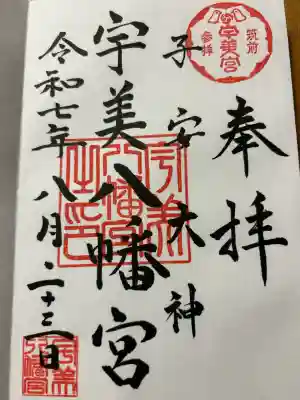 筑前
宇美宮
参拝
奉拝
子安大神
宇美八幡宮
宇美八幡宮之印
令和七年八月二十三日
宇美八幡宮